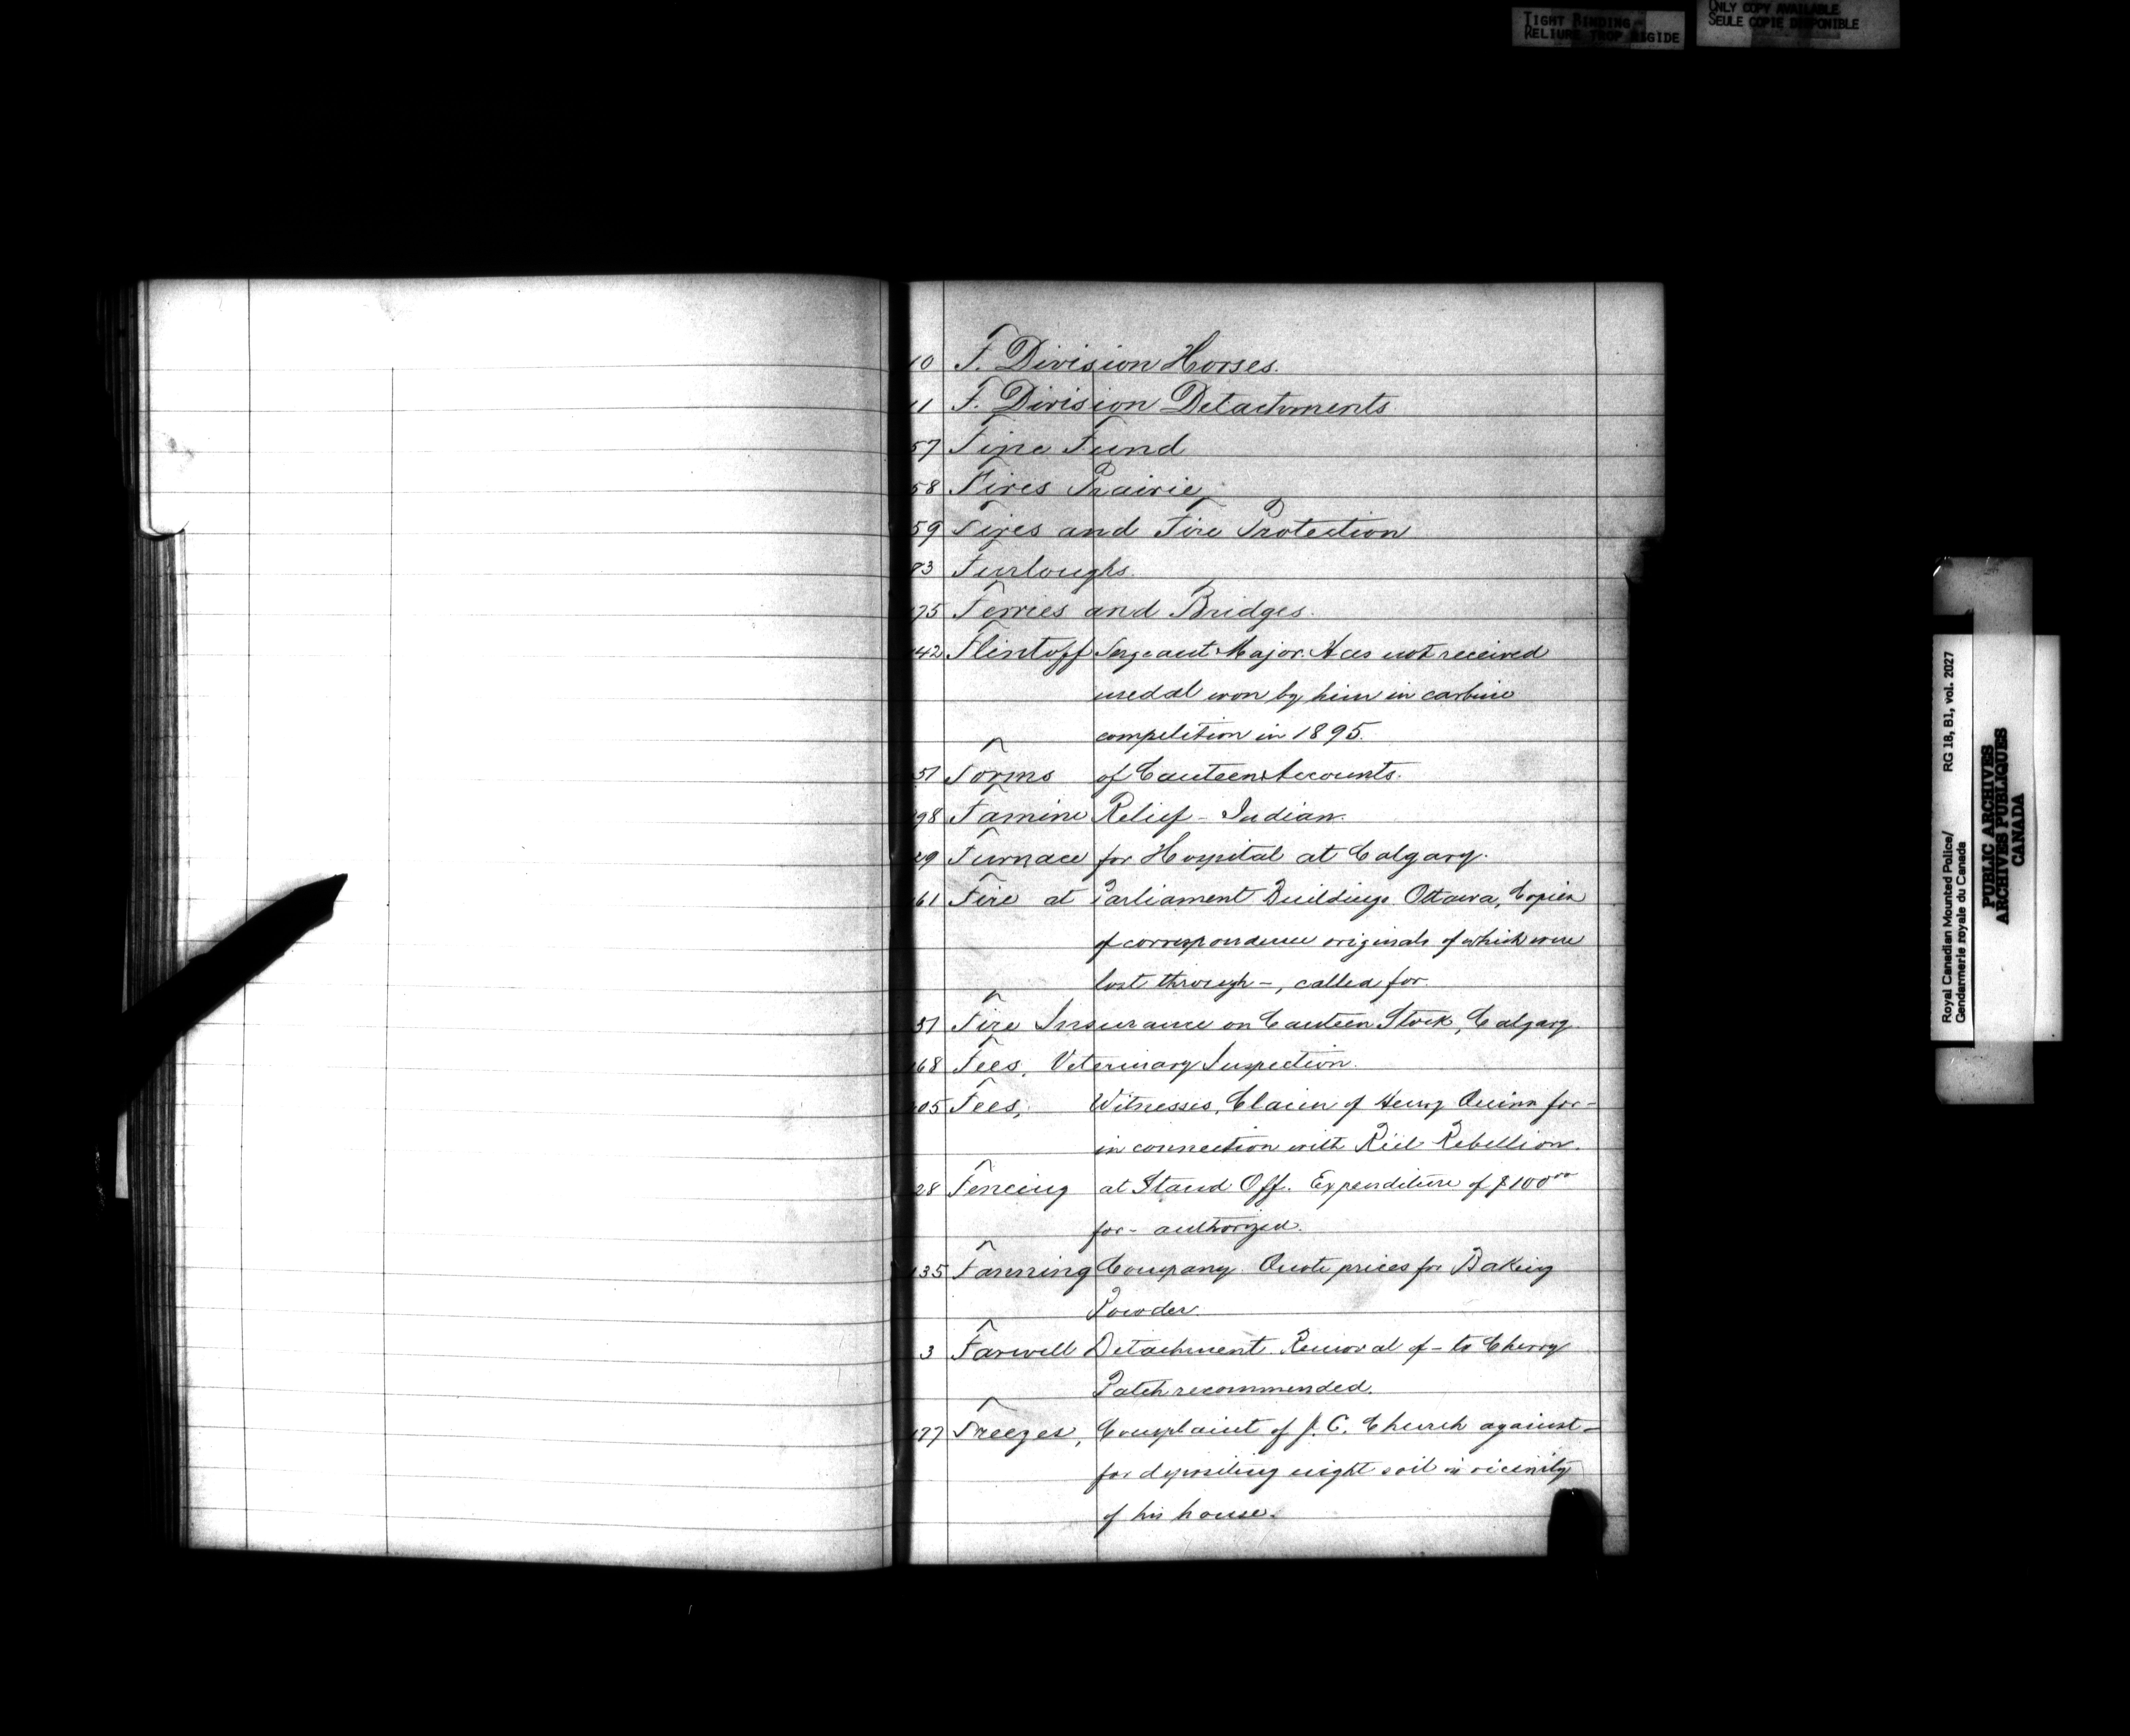 TIGHT BINDING -
RELIURE TROP RIGIDE
ONLY COPY AVAILABLE
SEULE COPIE DISPONIBLE
10 F. Division Horses.
11 F. Division Detachments
57 Fine Fund
58 Fires Prairie
59 Fires and Fire Protection
83 Furloughs.
175 Ferries and Bridges.
142 Flintoff Sergeant Major. Has not received
medal won by him in carbine
competition in 1895.
51 Forms of Canteen Accounts.
98 Famine Relief - Indian.
29 Furnace for Hospital at Calgary.
161 Fire at Parliament Buildings Ottawa, Copies
of correspondence originals of which were
lost through -, called for.
51 Fire Insurance on Canteen Stock, Calgary
168 Fees, Veterinary Inspection.
105 Fees, Witnesses, Claim of Henry Quinn for -
in connection with Riel Rebellion.
28 Fencing at Stand Off. Expenditure of $100 00
for - authorized.
135 Fanning Company. Quote prices for Baking
Powder.
3 Farwell Detachment. Removal of - to Cherry
Patch recommended.
177 Freezes, Complaint of J. C. Church against -
for depositing night soil in vicinity
of his house.
Royal Canadian Mounted Police/ RG 18, B1, vol. 2027
Gendarmerie royale du Canada
PUBLIC ARCHIVES
ARCHIVES PUBLIQUES
CANADA